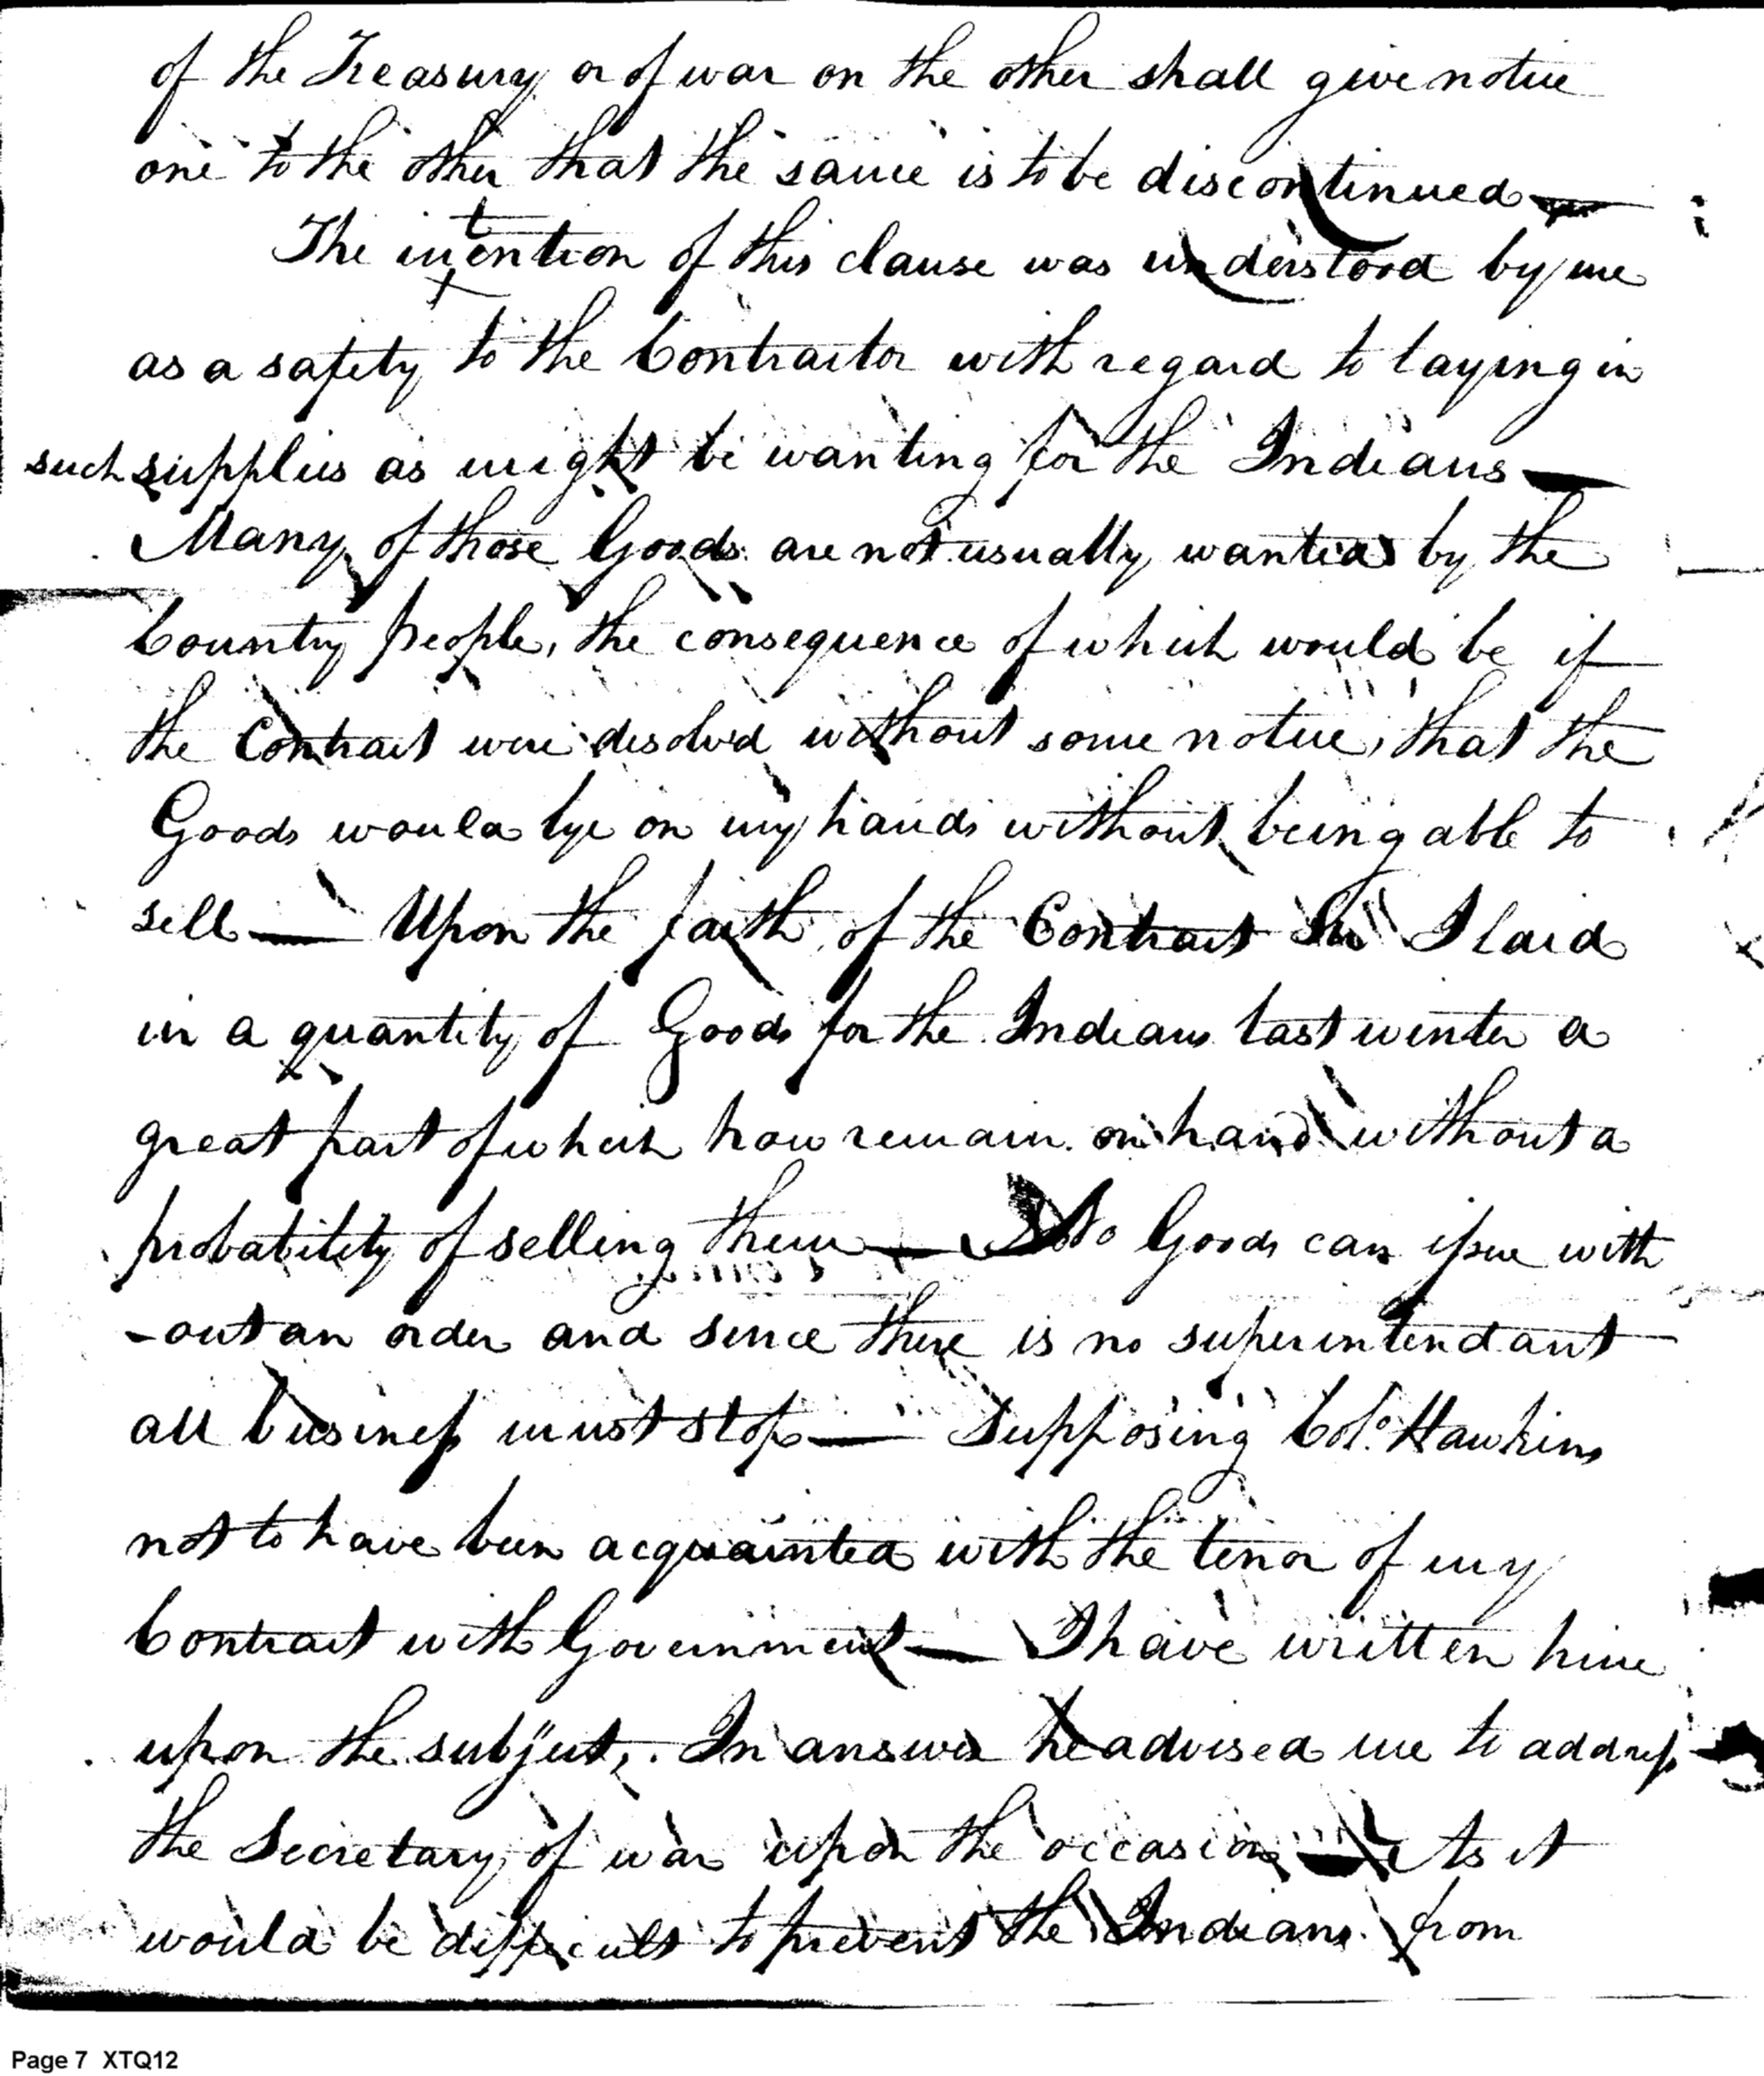 of the Treasury or of war on the other shall give notice
one to the other that the same is to be discontinued —
The intention of this clause was understood by me
as a safety to the Contractor with regard to laying in
such supplies as might be wanting for the Indians —
Many of those Goods are not usually wanted by the
Country people, the consequence of which would be if
the Contract were disolved without some notice, that the
Goods would lye on my hands without being able to
sell — Upon the faith of the Contract Sir I laid
in a quantity of Goods for the Indians last winter a
great part of which now remain on hand without a
probability of selling them — No Goods can issue with
-out an order and since there is no superintendant
all business must stop — Supposing Colo. Hawkins
not to have been acquainted with the tenor of my
Contract with Government — I have written him
upon the subject, In answer he advised me to address
the Secretary of war upon the occasion — As it
would be difficult to prevent the Indians from
Page 7 XTQ12